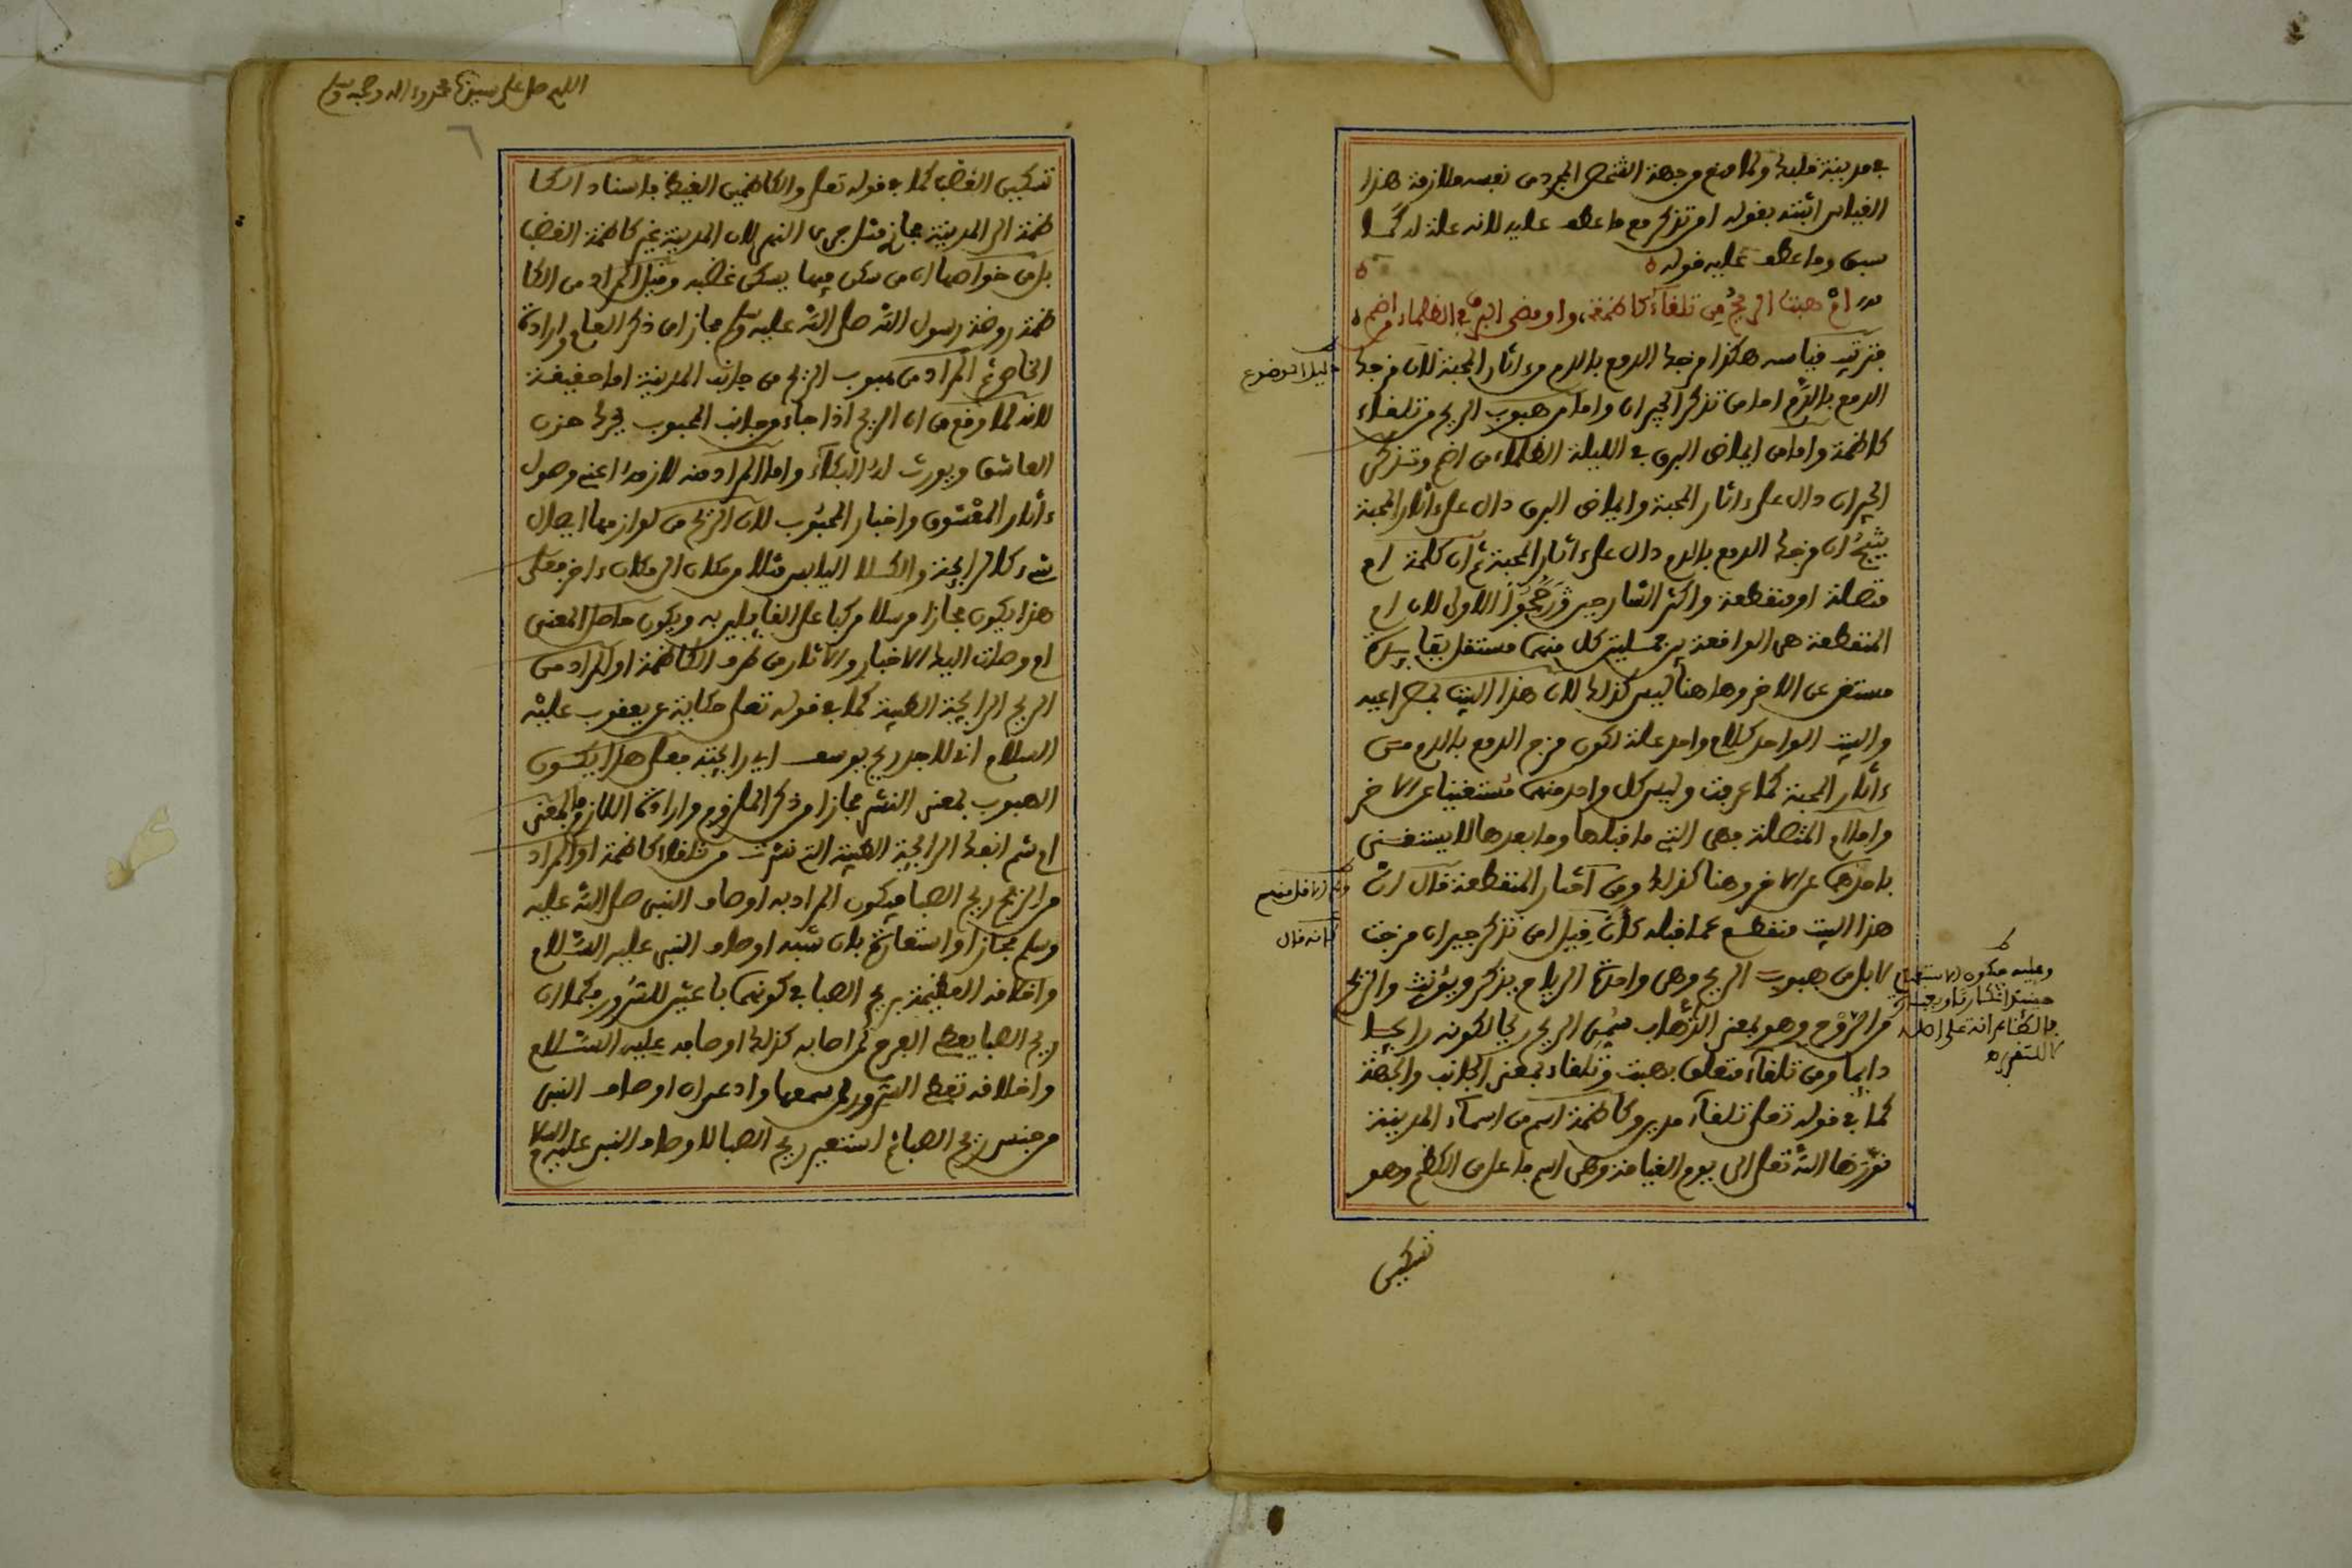 في مدينة قلبك ولما منع من جهة الشخص المجرد من نفسه ملازمة هذا
القياس اثبته بقوله ام تذكر مع ما عطف عليه لانه علة له كما
سبق وما عطف عليه قوله ه
ام هبت الريح من تلقاء كاظمة، واومض البرق في الظلماء من اضم
فترتب قياسه هكذا مزجك الدمع بالدم من ءاثار المحبة لان مزجك
الدمع بالدم اما من تذكر الجيران واما من هبوب الريح من تلقاء
كاظمة واما من ايماض البرق في الليلة الظلماء من اضم وتذكر
الجيران دال على ءاثار المحبة وايماض البرق دال على ءاثار المحبة
ينتج ان مزجك الدمع بالدم دال على ءاثار المحبة ثم ان كلمة ام
متصلة او منقطعة واكثر الشارحين رجحوا الاولى لان ام
المنقطعة هي الواقعة بين جملتين كل منهما مستقل بفايدته
مستغن عن الاخر وها هنا ليس كذلك لان هذا البيت بمصراعيه
والبيت الواحد كلام واحد علة لكون مزج الدمع بالدم من
ءاثار المحبة كما عرفت وليس كل واحد منهما مستغنيا عن الاخر
واما ام المتصلة فهي التي ما قبلها وما بعدها لا يستغنى
باحدهما عن الاخر وهنا كذلك ومن اختار المنقطعة قال ان
هذا البيت منقطع عما قبله كان قيل امن تذكر جيران مزجت
لا بل من هبوب الريح وهي واحدة الرياح يذكر ويؤنث والريح
من الروح وهو بمعنى الذهاب سمي الريح ريحا لكونه رايحا
دايما ومن تلقاء متعلق بهبت وتلقاء بمعنى الجانب والجهة
كما في قوله تعالى تلقاء مدين وكاظمة اسم من اسماء المدينة
نورها الله تعالى الى يوم القيامة وهي اسم فاعل من الكظم وهو
تسكين
دليل الموضوع
كانه قال
وعليه فيكون الاستفهام
اللهم صل على سيدنا محمد وءاله وصحبه وسلم
٦
تسكين الغضب كما في قوله تعالى والكاظمين الغيظ فاسناد الكا
ظمة الى المدينة مجاز مثل جرى النهر لان المدينة غير كاظمة الغضب
بل من خواصها ان من سكن فيها يسكن غضبه وقيل المراد من الكا
ظمة روضة رسول الله صلى الله عليه وسلم مجازا من ذكر العام وارادة
الخاص ثم المراد من هبوب الريح من جانب المدينة اما حقيقة
لانه لما وقع من ان الريح اذا جاء من جانب المحبوب يحرك حزن
العاشق ويورث له البكاء واما المراد منه لازمه اعني وصول
ءاثار المعشوق واخبار المحبوب لان الريح من لوازمها ايصال
شيء كالرايحة والكلا اليابس مثلا من مكان الى مكان ءاخر فعلى
هذا يكون مجازا مرسلا مركبا على القايلين به ويكون حاصل المعنى
ام وصلت اليك الاخبار والاثار من طرف الكاظمة او المراد من
الريح الرايحة الطيبة كما في قوله تعالى حكاية عن يعقوب عليه
السلام اني لاجد ريح يوسف اي رايحته فعلى هذا يكون
الهبوب بمعنى النشر مجازا من ذكر الملزوم وارادة اللازم والمعنى
ام شم انفك الرايحة الطيبة التي نشرت من تلقاء كاظمة او المراد
من الريح ريح الصبا فيكون المراد به اوصاف النبي صلى الله عليه
وسلم مجازا واستعارة بان شبه اوصاف النبي عليه السلام
واخلاقه العظيمة بريح الصبا في كونهما باعثين للسرور فكما ان
ريح الصبا يعطي الفرح لمن اصابه كذلك اوصافه عليه السلام
واخلاقه تعطي السرور لمن سمعها وادعى ان اوصاف النبي
من جنس ريح الصبا ثم استعير ريح الصبا لاوصاف النبي عليه السلام